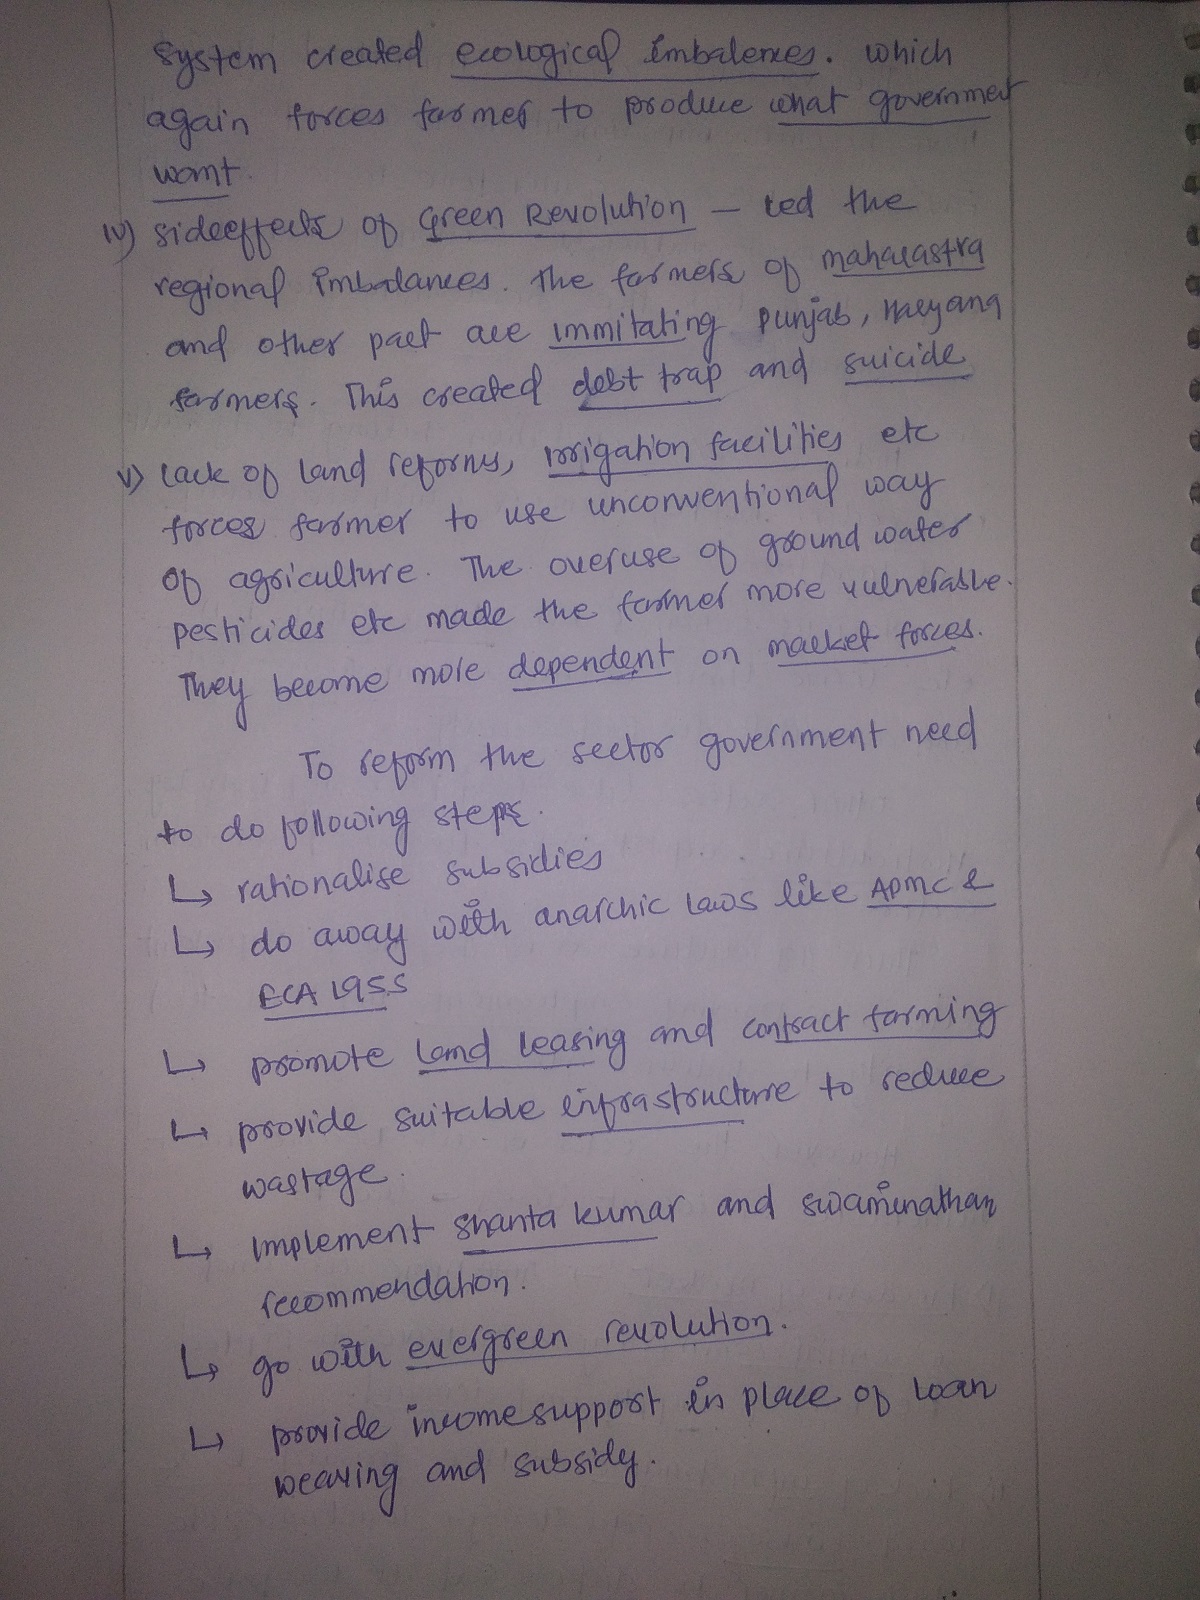 system created ecological imbalences. which
again forces farmer to produce what government
want.
iv) sideeffects of Green Revolution – led the
regional imbalances. The farmers of maharastra
and other part are immitating Punjab, Haryana
farmers. This created debt trap and suicide
v) Lack of land reforms, irrigation facilities etc
forces farmer to use unconventional way
of agriculture. The overuse of ground water
pesticides etc made the farmer more vulnerable.
They become more dependent on market forces.
To reform the sector government need
to do following steps.
↳ rationalise subsidies
↳ do away with anarchic laws like APMC &
ECA 1955
↳ promote land leasing and contract farming
↳ provide suitable infrastructure to reduce
wastage.
↳ implement shanta kumar and swaminathan
recommendation.
↳ go with evergreen revolution.
↳ provide income support in place of loan
weaving and subsidy.